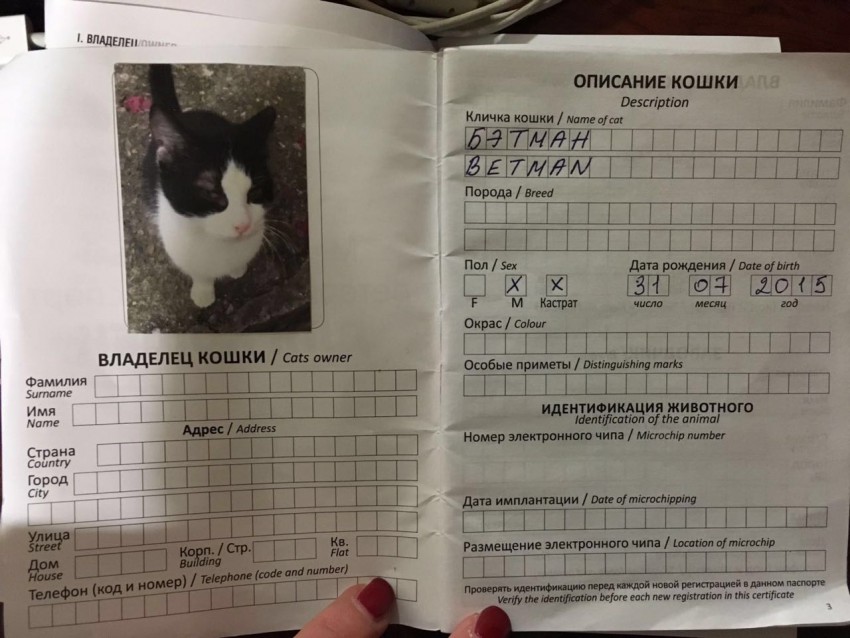 I. ВЛАДЕЛЕЦ/OWNER
ВЛАДЕЛЕЦ КОШКИ / Cats owner
Фамилия
Surname
Имя
Name
Адрес / Address
Страна
Country
Город
City
Улица
Street
Дом
House
Корп. / Стр.
Building
Кв.
Flat
Телефон (код и номер) / Telephone (code and number)
ОПИСАНИЕ КОШКИ
Description
Кличка кошки / Name of cat
БЭТМАН
BETMAN
Порода / Breed
Пол / Sex
Дата рождения / Date of birth
X X 31 07 2015
F M Кастрат число месяц год
Окрас / Colour
Особые приметы / Distinguishing marks
ИДЕНТИФИКАЦИЯ ЖИВОТНОГО
Identification of the animal
Номер электронного чипа / Microchip number
Дата имплантации / Date of microchipping
Размещение электронного чипа / Location of microchip
Проверять идентификацию перед каждой новой регистрацией в данном паспорте
Verify the identification before each new registration in this certificate
3